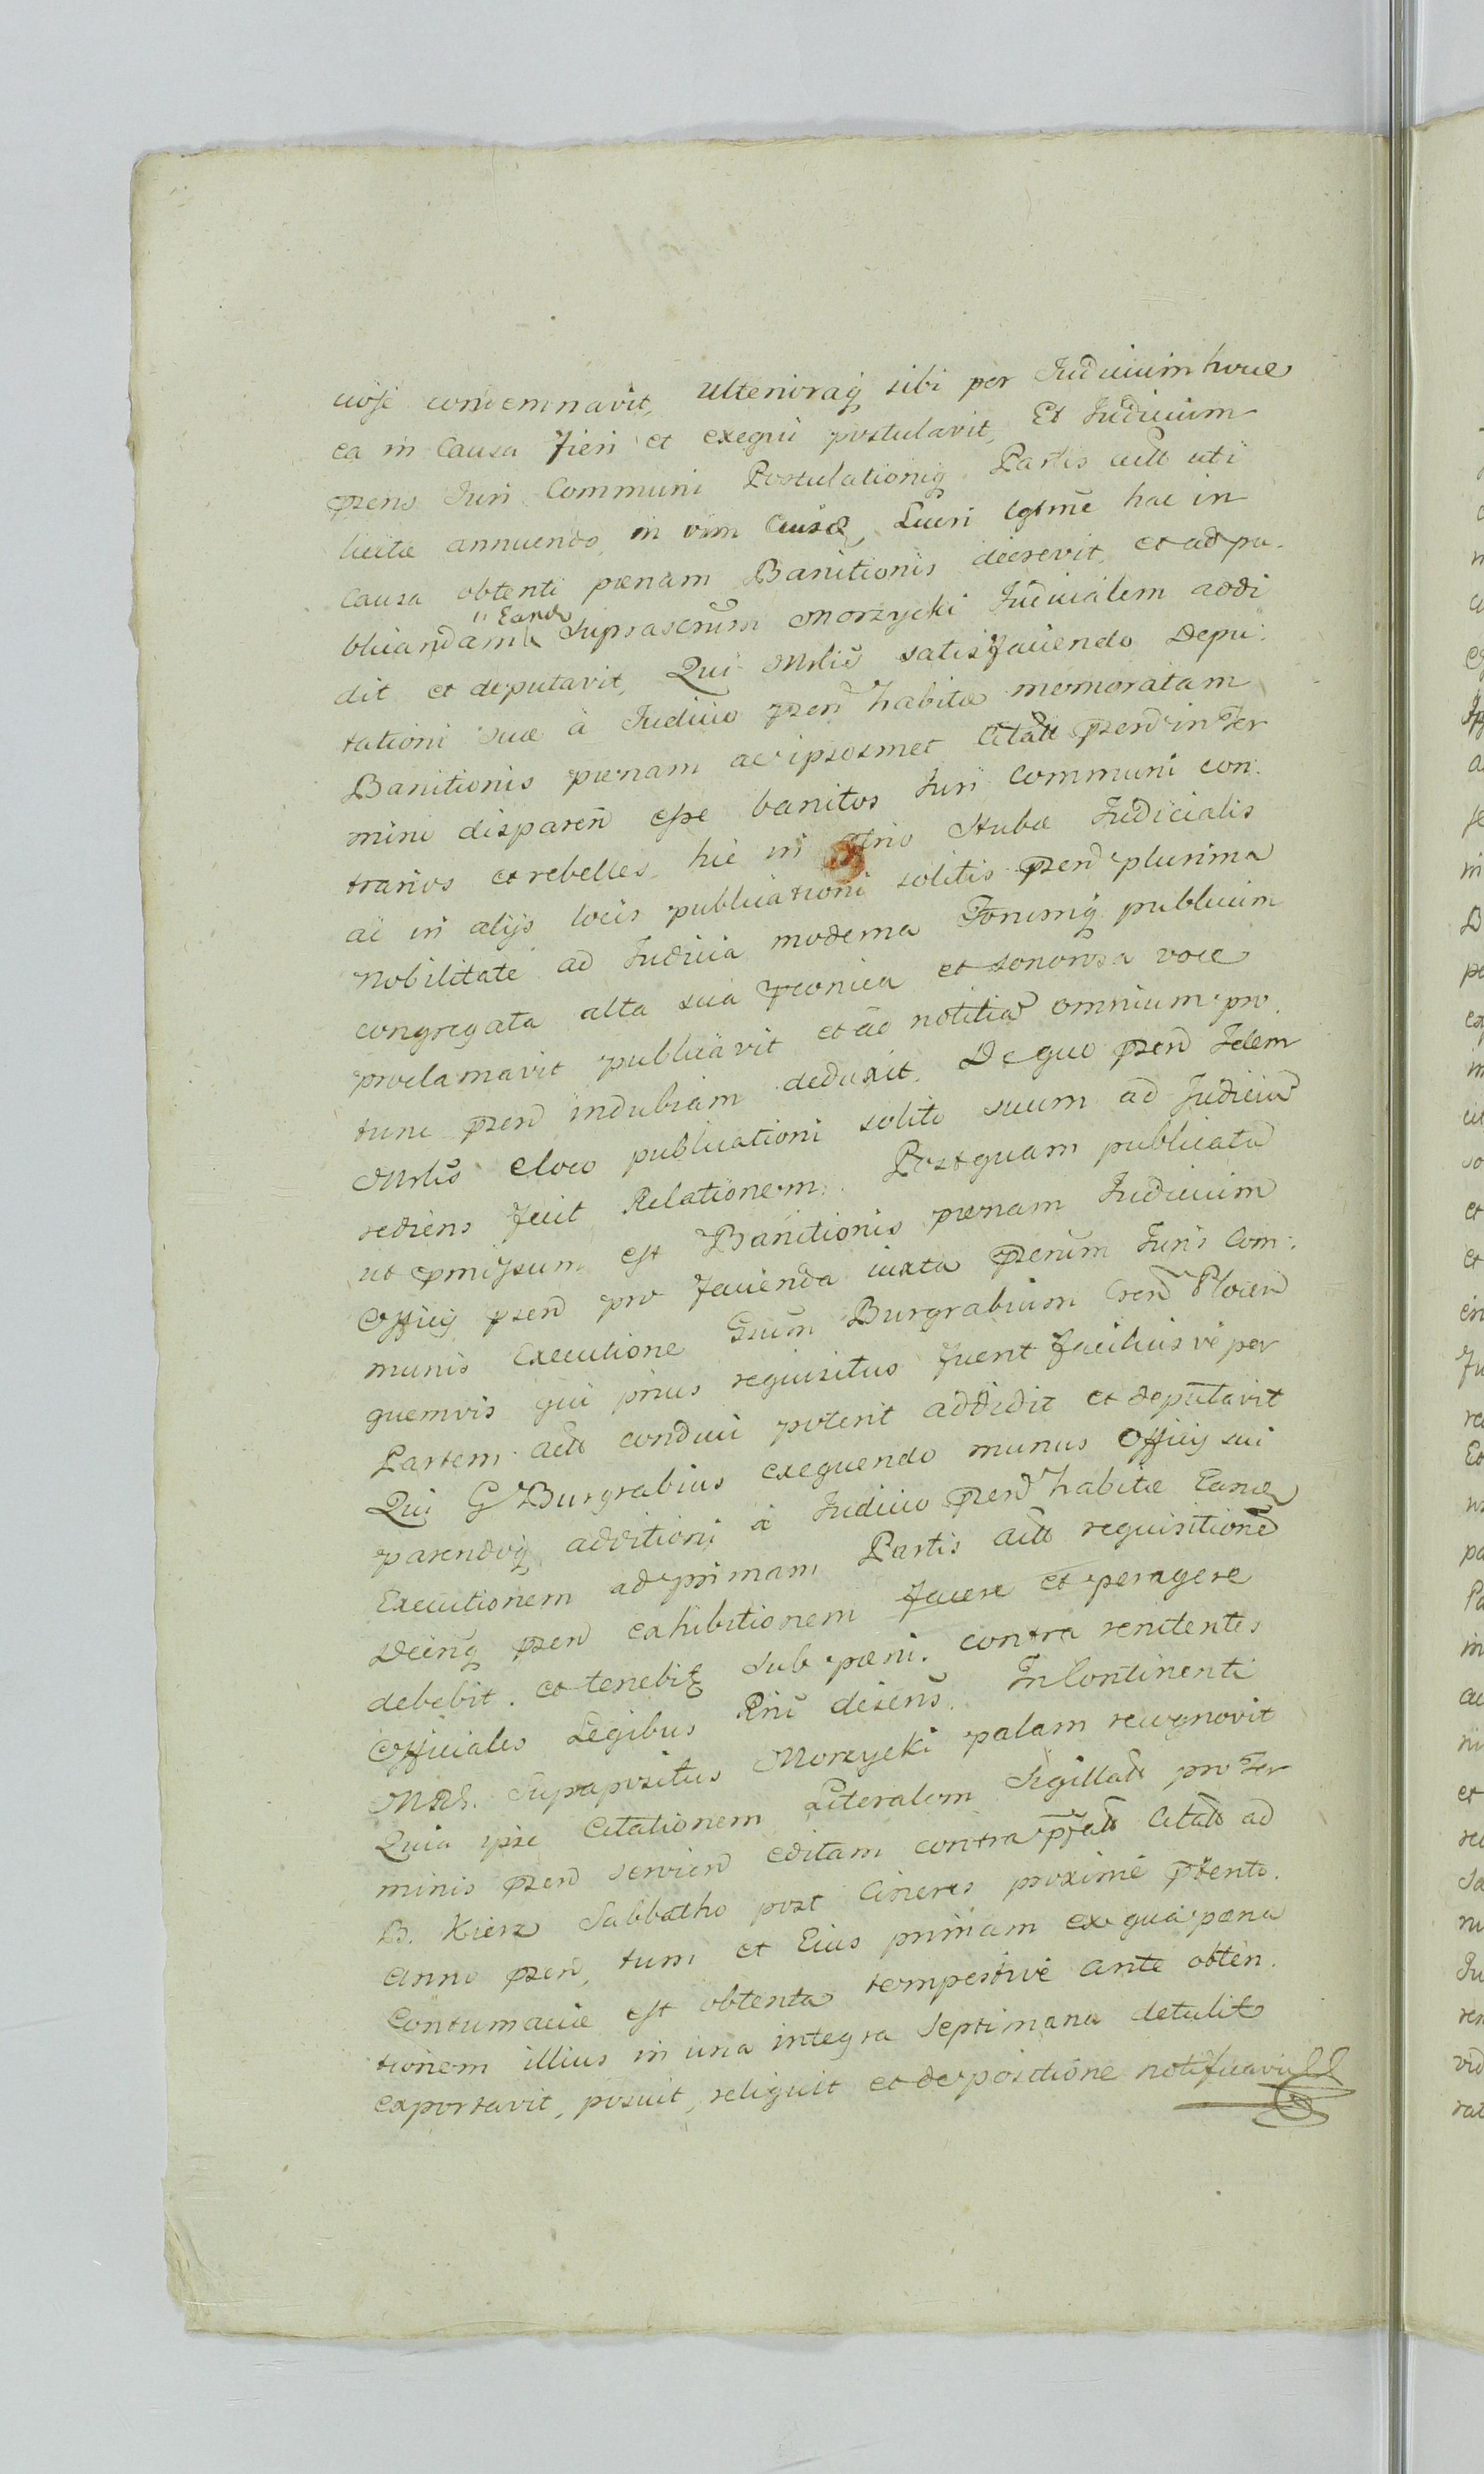 ciose condemnavit, Ulterioraq sibi per Judicium hocce
ea in Causa fieri et exequi postulavit, Et Judicium
pzens Juri Communi Postulationiq Partis actt uti
licitæ annuendo, in vim Causæ, Lucri lgtme hac in
Causa obtenti pœnam Banitionis decrevit, et ad pu-
blicandam Eand Suprascrum Morzycki Judicialem addi
dit et deputavit, Qui Mrlis satisfaciendo Depu-
tationi suæ à Judicio pzen habitæ memoratam
Banitionis pœnam ac ipsosmet Citatt pzen in Ter
mino disparen esse banitos Juri Communi con-
trarios et rebelles, hic in Atrio Stubæ Judicialis
ac in alijs locis publicationi solitis pzen plurima
Nobilitate ad Judicia moderna Forumq publicum
congregata alta sua preonica et sonorosa voce
proclamavit publicavit et ad notitia omnium pro
tunc pzen indubiam deduxit. De quo pzen Idem
Mrlis e loco publicationi solito suum ad Judicia
rediens fecit Relationem. Postquam publicata
ut pmissum est Banitionis pœnam Judicium
Officij pzen pro facienda iuxta pzerum Juris Com-
munis Executione Gsum Burgrabium Cren Plocen
quemvis qui prius requisitus fuerit faciliusve per
Partem actt conduci poterit addidit et deputavit
Qui G Burgrabius exequendo munus Officij sui
parendoq additioni à Judicio pzen habitæ Eand
Executionem ad primam Partis actt requisitione
Deinq pzen exhibitionem facere et peragere
debebit et tenebitq sub pœni. contra renitentes
Officiales Legibus Rni descris. In Continenti
MRl. Suprapositus Morzycki palam recognovit
Quia ipse Citationem Literalem Sigillatt pro Ter
minis pzen servien editam contra pfatt Citatt ad
B. Kierz Sabbatho post Cineres proxime pterito.
Anno pzen, tum et Eius primam ex qua pœna
Contumaciæ est obtenta tempestive ante obten-
tionem illius in una integra Septimana detulit
exportavit, posuit, reliquit et de positione notificavit